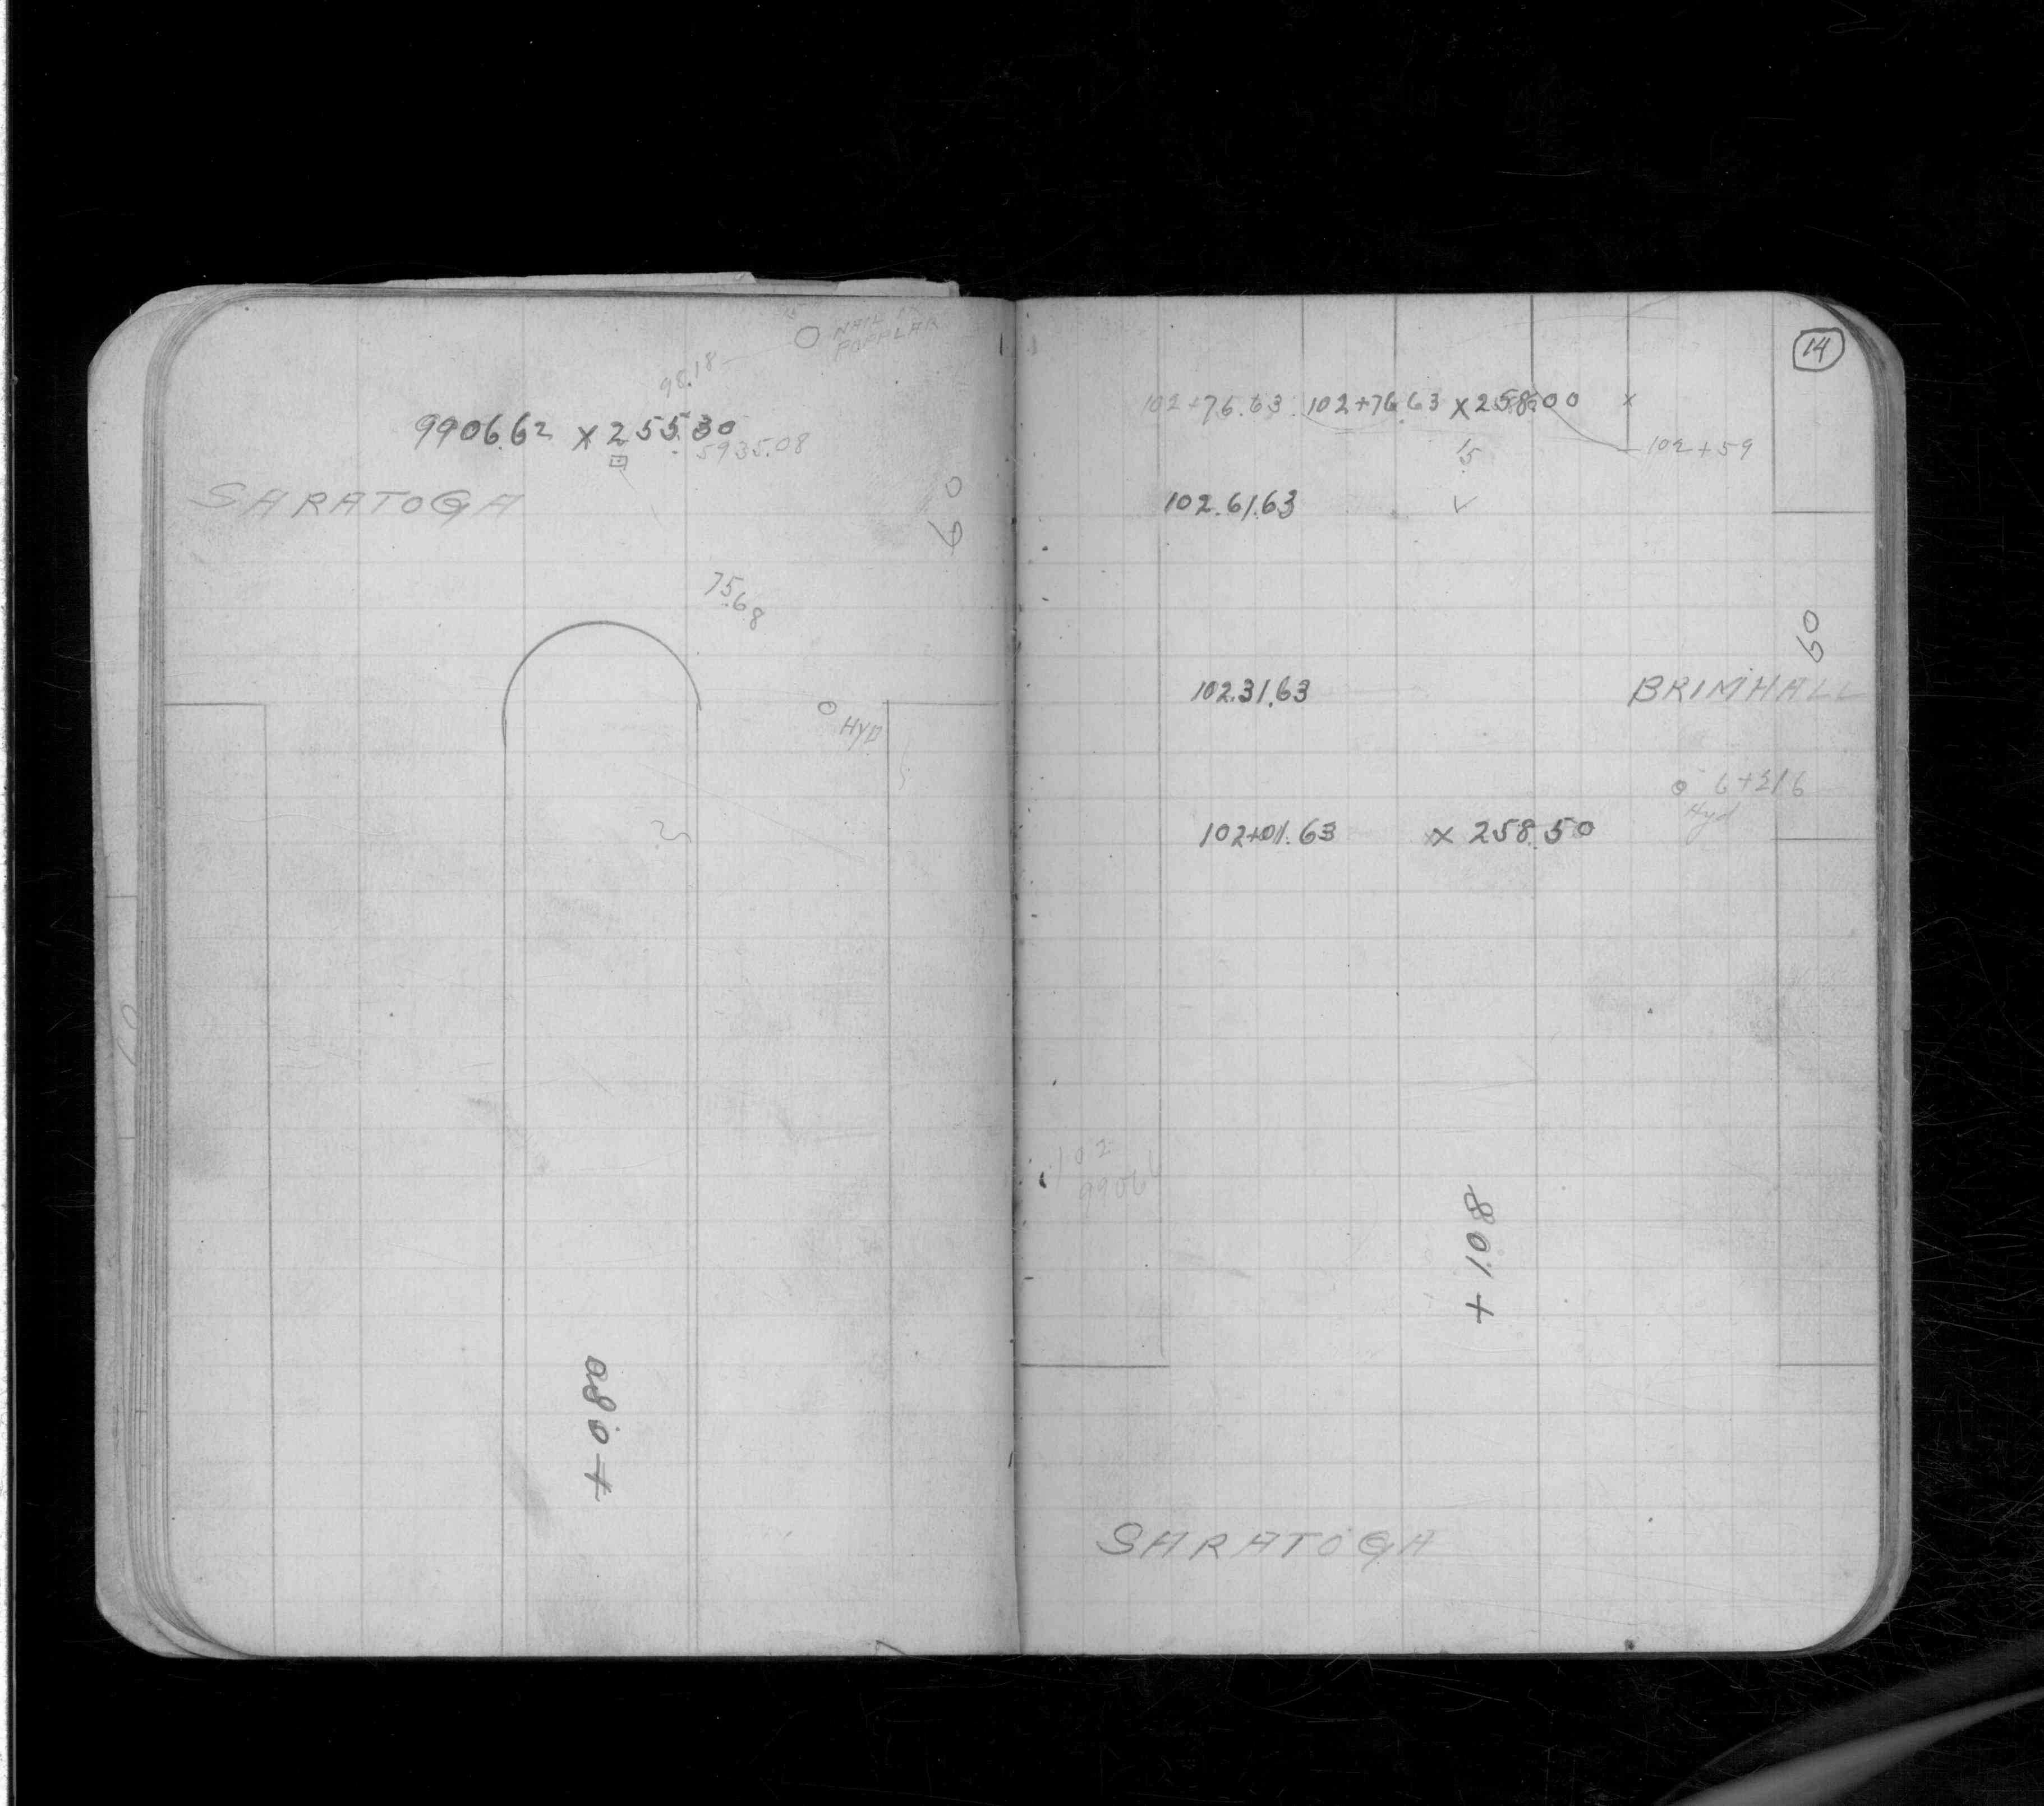 NAIL
POPPLAR
98.18
9906.62 x 255.30
5935.08
SARATOGA
60
75.68
HYD
+ 0.80
14
102+76.63 102+76.63 x 258.00 x
15
102+59
102.61.63
60
102.31.63
BRIMHALL
Hyd
102+01.63 x 258.50
102
9906
+ 1.08
SARATOGA